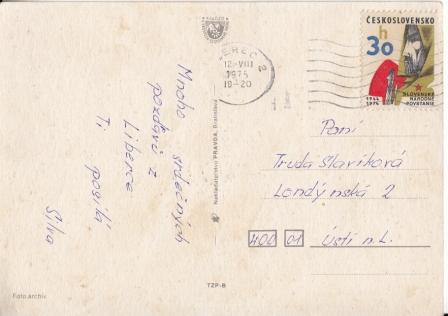 Mnoho srdečných
pozdravů z
Liberce
Ti posílá
Nakladatelství PRAVDA, Bratislava
TZP-B
Foto archív
12.VIII
1975
18-20
2
ČESKOSLOVENSKO
30 h
SLOVENSKÉ
NÁRODNÉ
POVSTANIE
1944
1974
Paní
Truda Slavíková
Londýnská 2
400 01 Ústí n.L.